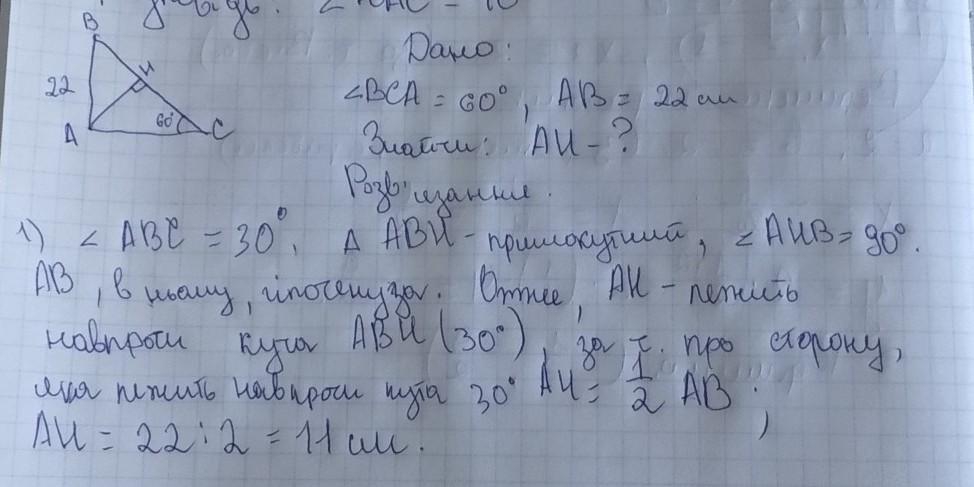 B
Дано:
22
H
∠BCA = 60°, AB = 22 см
A
60°
C
Знайти: AH - ?
Розв'язання.
1) ∠ABC = 30°, Δ ABH - прямокутний, ∠AHB = 90°.
AB, в ньому, гіпотенуза. Отже, AH - лежить
навпроти кута ABH (30°), за т. про сторону,
яка лежить навпроти кута 30° AH = 1/2 AB ;
AH = 22 : 2 = 11 см.